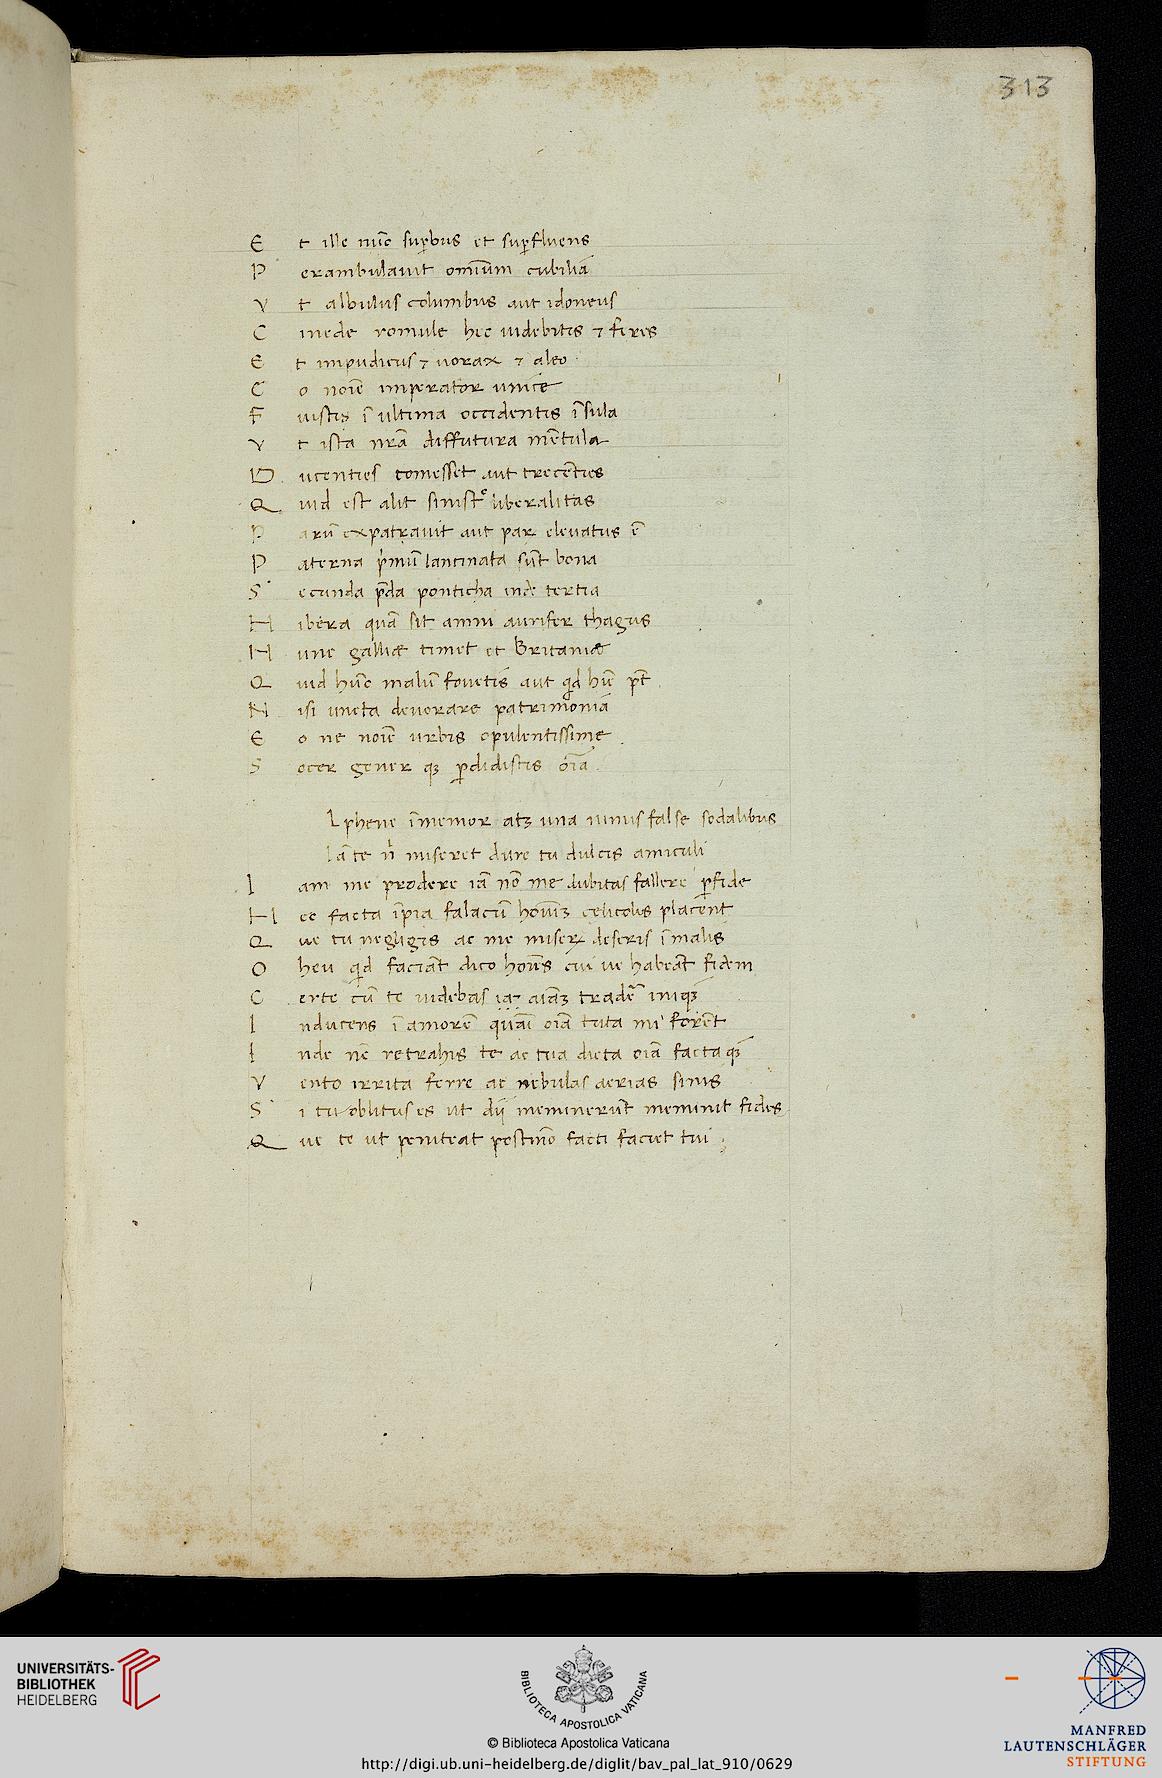 313
E t ille nūc supbus et supfluens
P erambulauit omīum cubilia
V t albulus columbus aut idoneus
C inede romule hec uidebitis ⁊ feres
E t impudicus ⁊ uorax ⁊ aleo
C o noīe imperator unice
F uistis ī ultima occidentis īsula
V t ista nrā diffutura mētula
D ucenties comesset aut trecēties
Q uid est alit sinistͤ liberalitas
P arū expatrauit aut par eleuatus ē
P aterna pͥmū lancinata sūt bona
S ecunda p̄da ponticha inde tertia
H ibera quā sit amni aurifer thagus
H unc galliæ timet et Britaniæ
Q uid hūc malū fouetis aut qͥd hūc pt̄
N isi uncta deuorare patrimonia
E o ne noīe urbis opulentissime
S ocer gener qꝫ ꝑdidistis oīa
Lphene īmemor atꝫ una nimis false sodalibus
Iā te nͥ miseret dure tu dulcis amiculi
I am me prodere iā nō me dubitas fallere ꝑfide
H ec facta īpia falacū hoīuꝫ celicolis placēnt
Q ue tu negligis ac me miseꝝ deseris ī malis
O heu qͥd faciāt dico hoīēs cui ue habeāt fidem
C erte cū te uidebas iaꝫ aīaꝫ tradeͬ iniqꝫ
I nducens ī amorē quāī oīa tuta mi forēt
I nde nē retrahis te ac tua dicta oīa factaqꝫ
V ento irrita ferre ac nebulas aerias sinis
S i tu oblitus es ut dij meminerūt meminit fides
Q ue te ut peniteat postmō facti faciet tui
UNIVERSITÄTS-
BIBLIOTHEK
HEIDELBERG
BIBLIOTECA APOSTOLICA VATICANA
© Biblioteca Apostolica Vaticana
http://digi.ub.uni-heidelberg.de/diglit/bav_pal_lat_910/0629
MANFRED
LAUTENSCHLÄGER
STIFTUNG